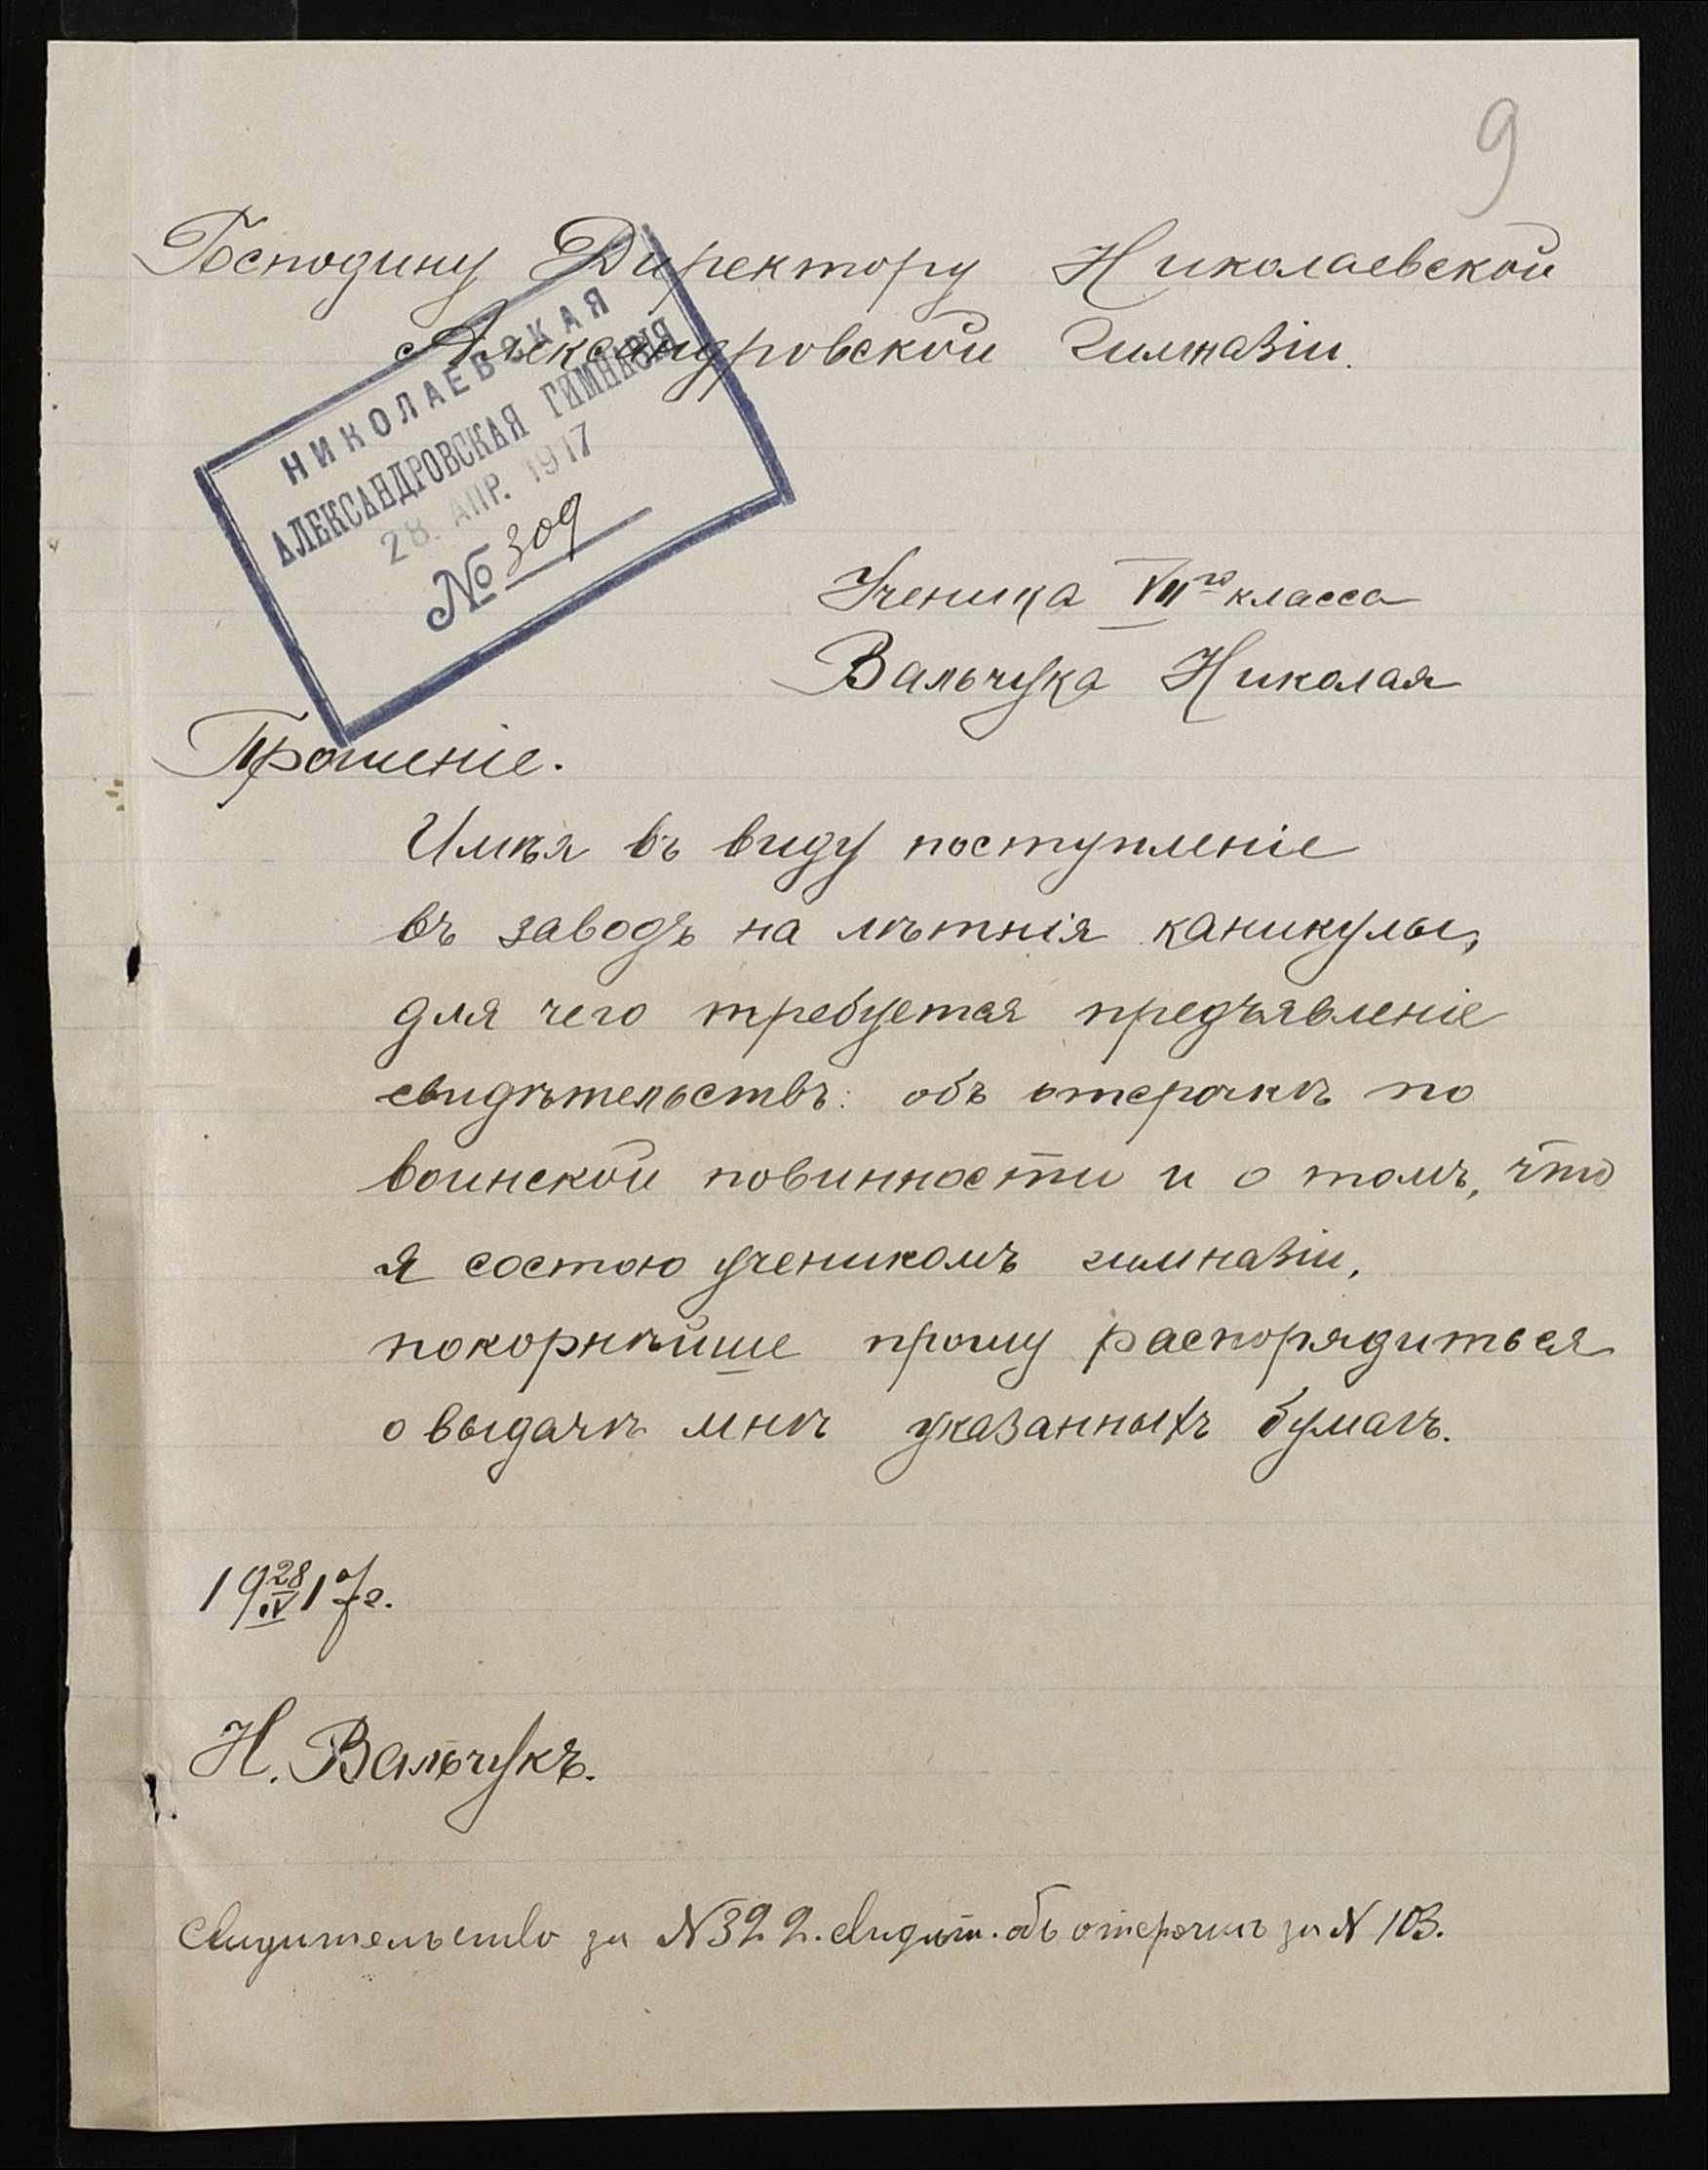 9
Господину Директору Николаевской
Александровской Гимназіи.
НИКОЛАЕВСКАЯ
АЛЕКСАНДРОВСКАЯ ГИМНАЗІЯ
28. АПР. 1917
№ 309
Ученика VII го класса
Вальчука Николая
Прошеніе.
Имѣя въ виду поступленіе
въ заводъ на лѣтнія каникулы,
для чего требуется предъявленіе
свидѣтельствъ: объ отсрочкѣ по
воинской повинности и о томъ, что
я состою ученикомъ гимназіи,
покорнѣйше прошу распорядиться
о выдачѣ мнѣ указанныхъ бумагъ.
19 28/IV 17 г.
Н. Вальчукъ.
Свидѣтельство за N 322. свидѣт. объ отсрочкѣ за N 103.